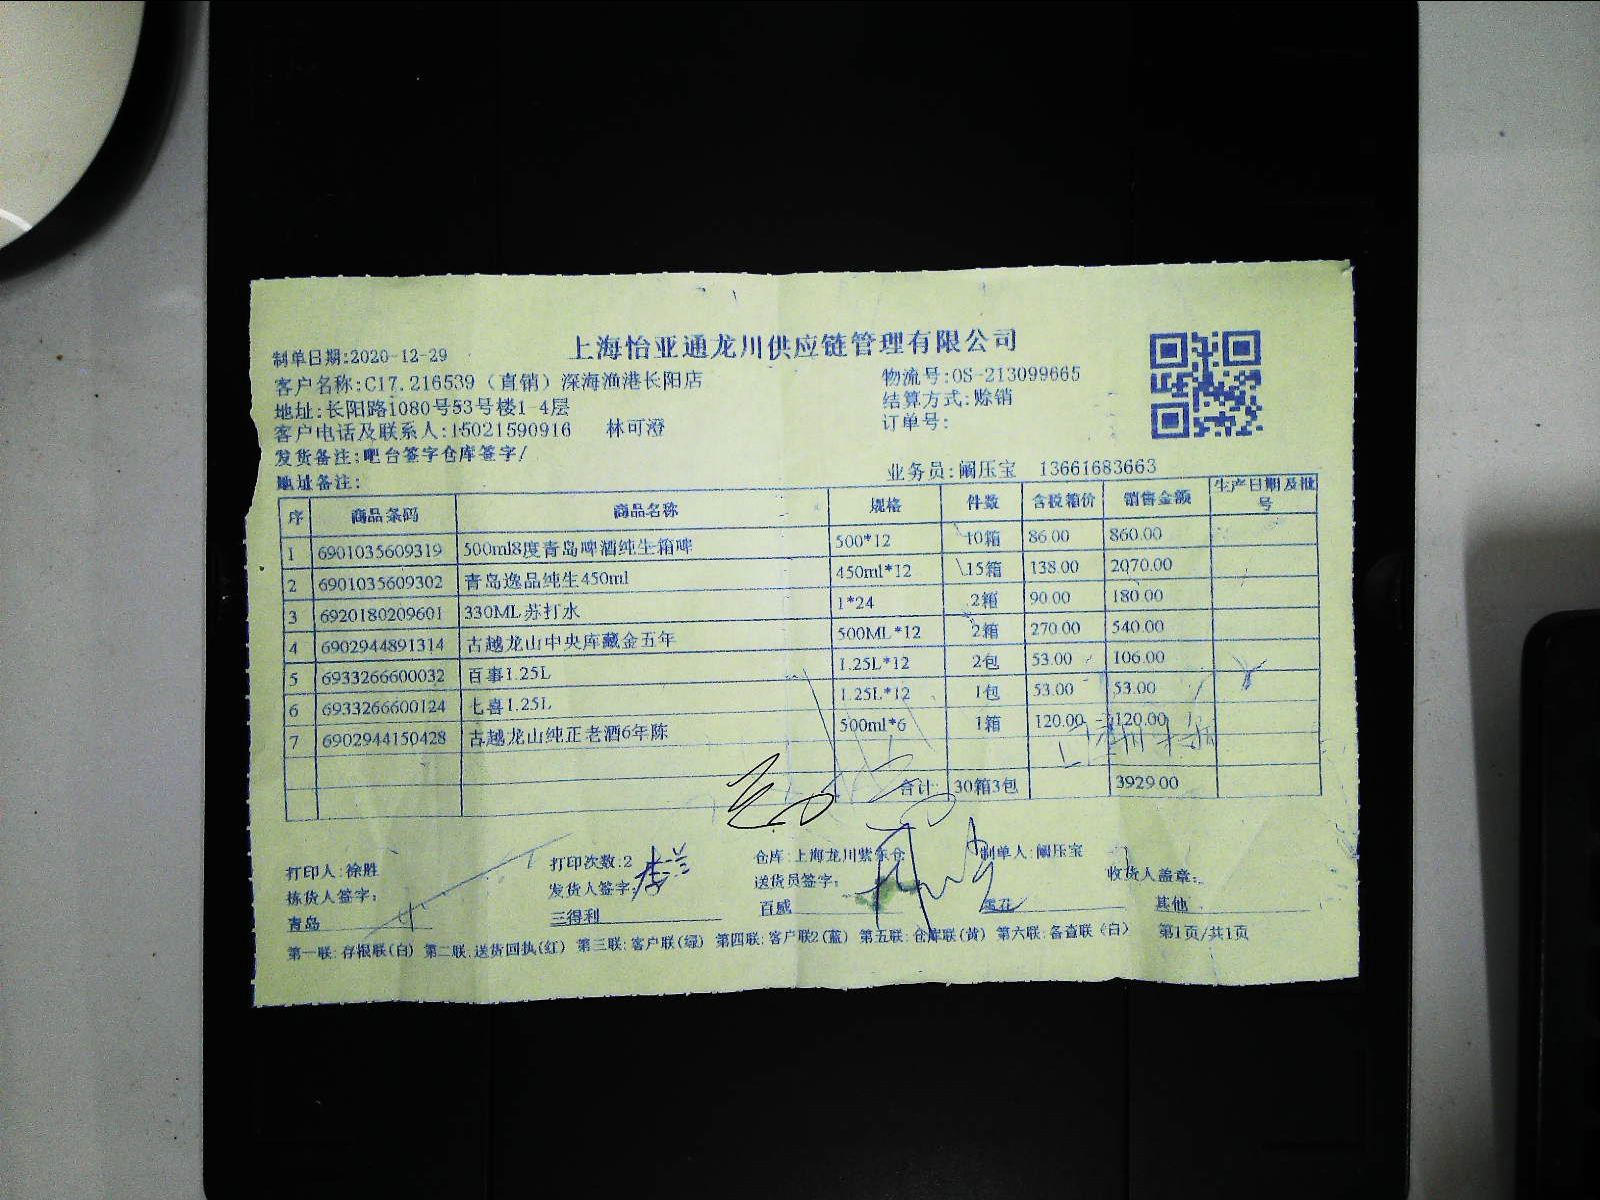 上海怡亚通龙川供应链管理有限公司
制单日期:2020-12-29
客户名称:C17.216539（直销）深海渔港长阳店 物流号:OS-213099665
地址:长阳路1080号53号楼1-4层 结算方式:赊销
客户电话及联系人:15021590916 林可澄 订单号:
发货备注:吧台签字仓库签字/
地址备注: 业务员:阚压宝 13661683663
序 商品条码 商品名称 规格 件数 含税箱价 销售金额 生产日期及批号
1 6901035609319 500ml8度青岛啤酒纯生箱啤 500*12 10箱 86.00 860.00
2 6901035609302 青岛逸品纯生450ml 450ml*12 15箱 138.00 2070.00
3 6920180209601 330ML苏打水 1*24 2箱 90.00 180.00
4 6902944891314 古越龙山中央库藏金五年 500ML*12 2箱 270.00 540.00
5 6933266600032 百事1.25L 1.25L*12 2包 53.00 106.00
6 6933266600124 七喜1.25L 1.25L*12 1包 53.00 53.00
7 6902944150428 古越龙山纯正老酒6年陈 500ml*6 1箱 120.00 120.00
合计: 30箱3包 3929.00
打印人:徐胜 打印次数:2 仓库:上海龙川紫东仓 制单人:阚压宝
拣货人签字: 发货人签字: 李兰 送货员签字: 收货人盖章:
青岛 三得利 百威 雪花 其他
第一联:存根联(白) 第二联:送货回执(红) 第三联:客户联(绿) 第四联:客户联2(蓝) 第五联:仓库联(黄) 第六联:备查联(白) 第1页/共1页